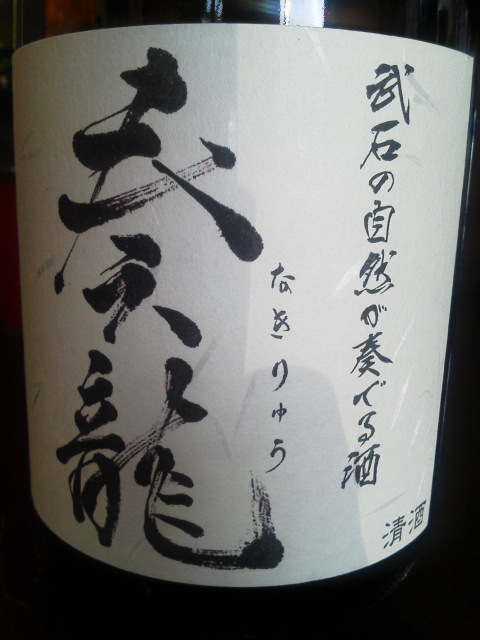 武石の自然が奏でる酒
清酒
なきりゅう
奏龍